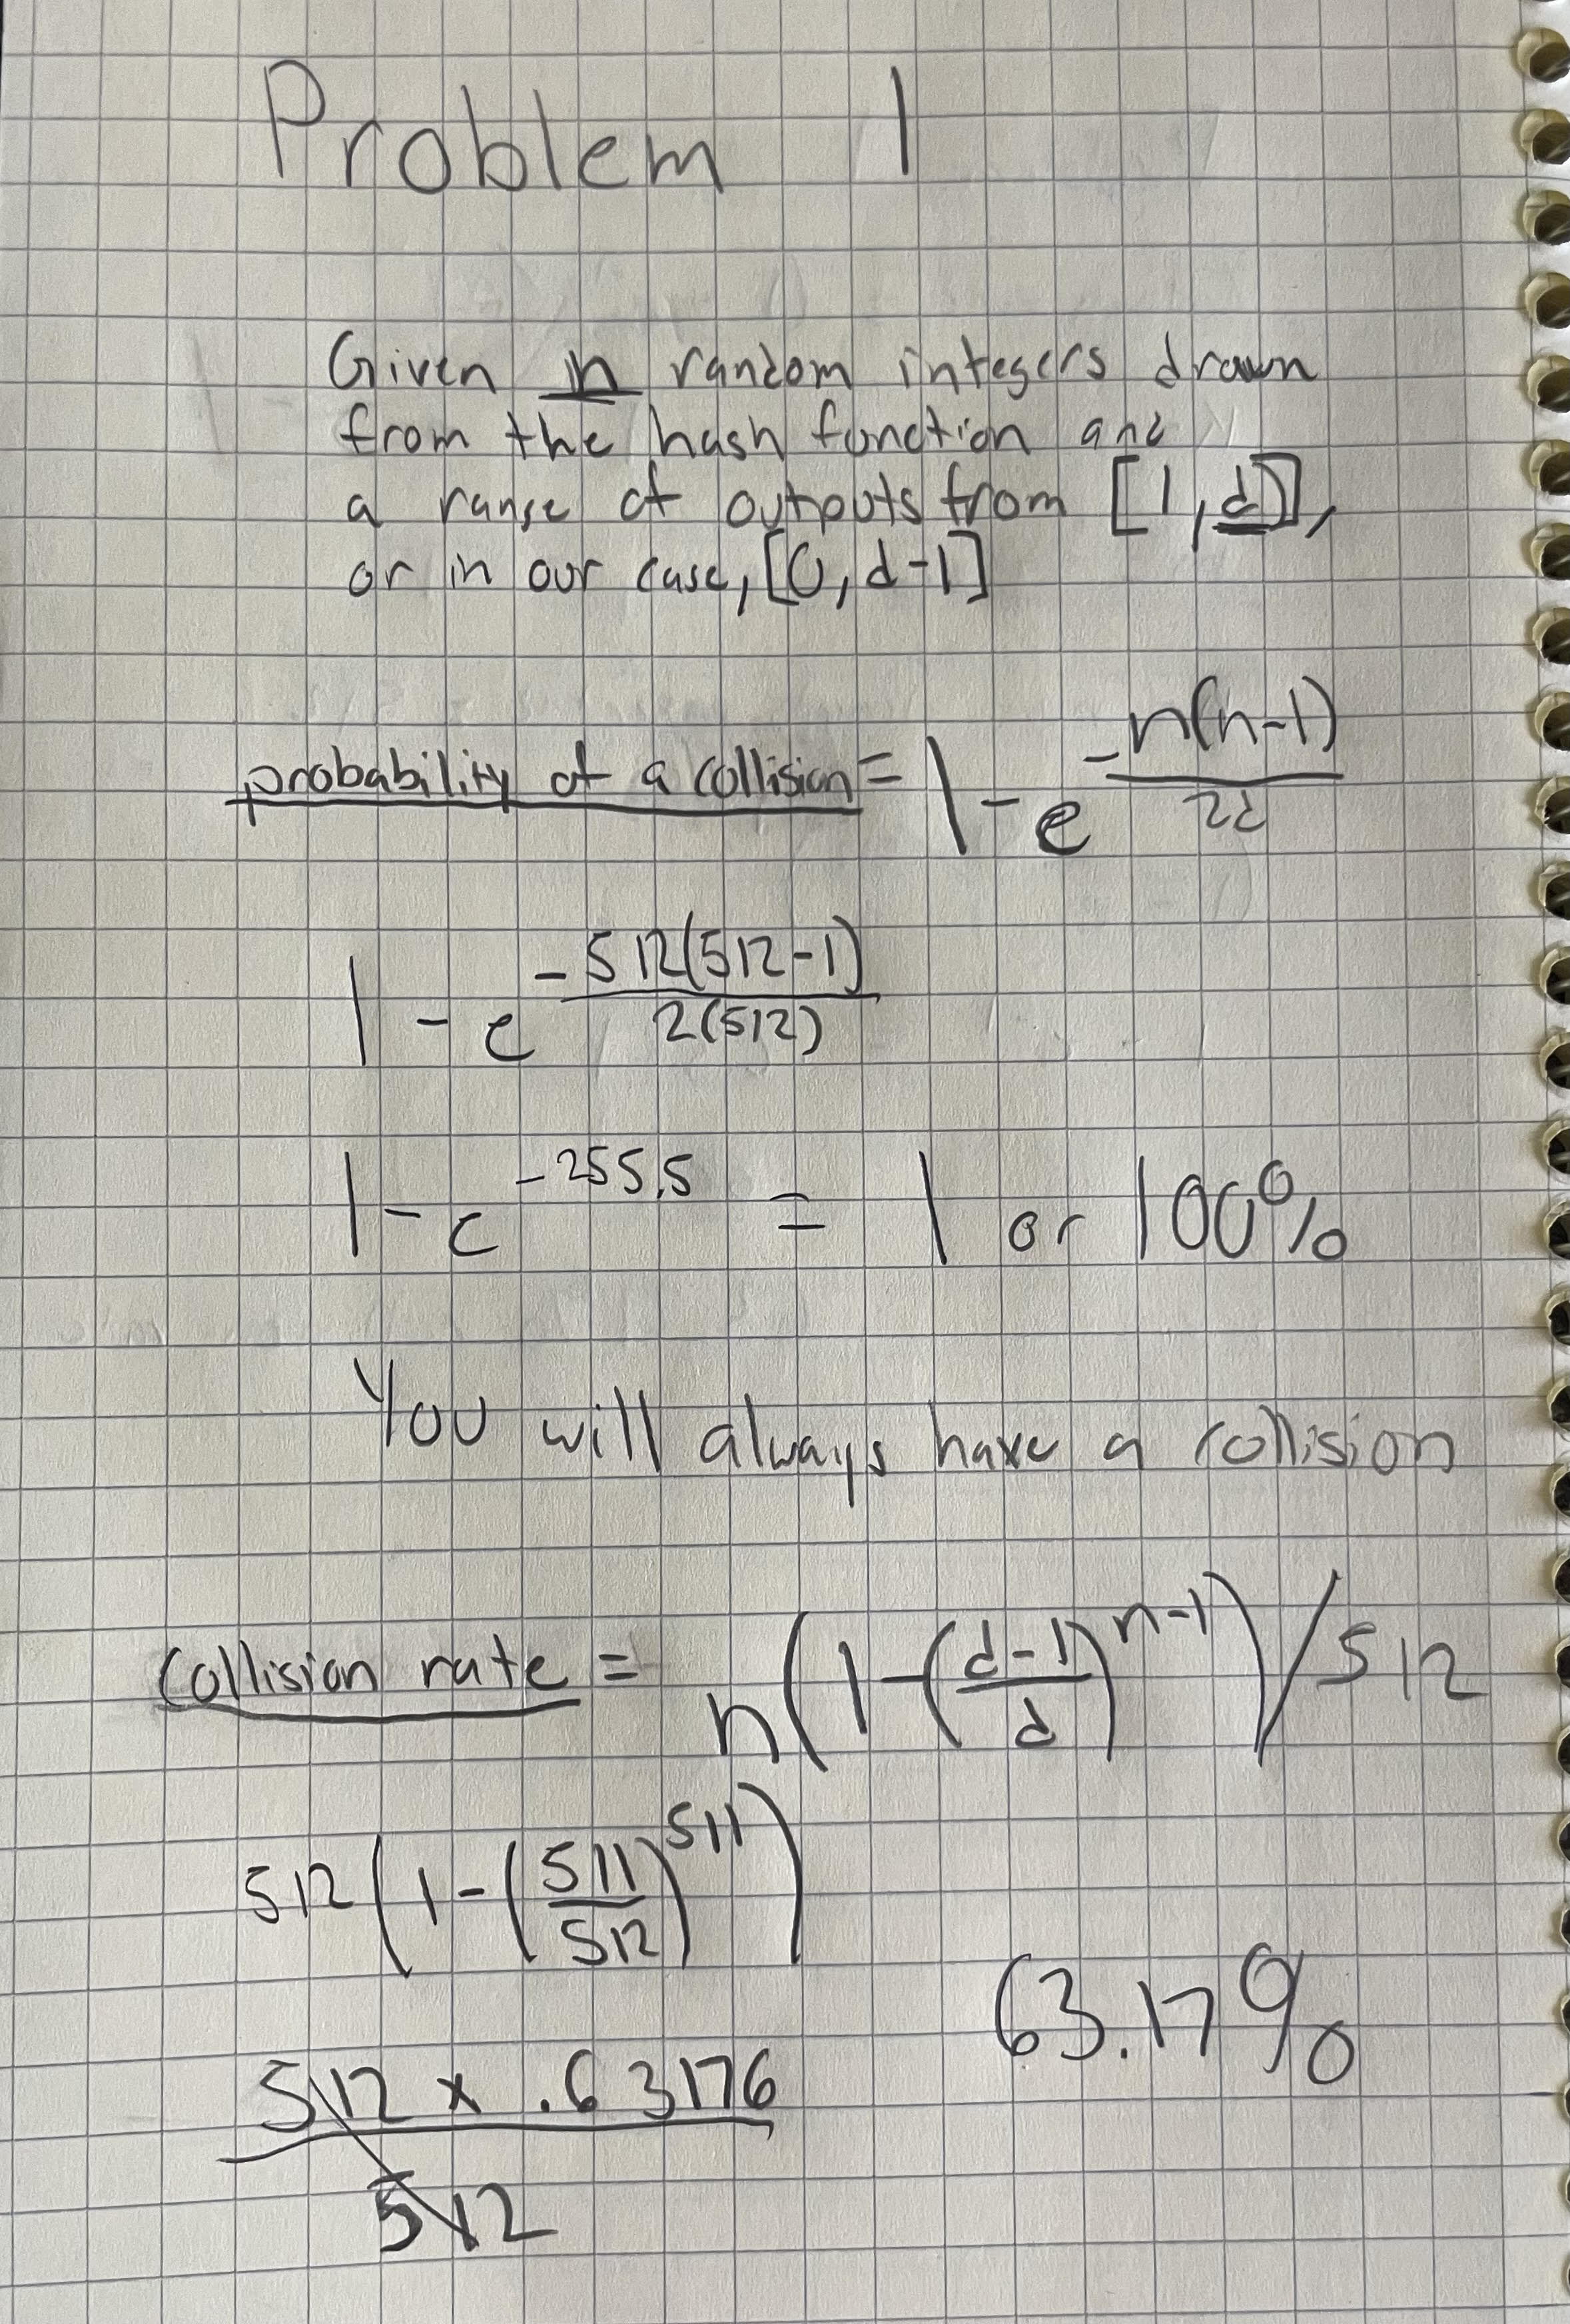 Problem 1
Given n random integers drawn
from the hash function and
a range of outputs from [1, d)],
or in our case, [0, d-1]
probability of a collision = 1 - e^(-n(n-1)/2d)
1 - e^(-512(512-1)/2(512))
1 - e^(-255.5) = 1 or 100%
You will always have a collision
Collision rate = n(1-((d-1)/d)^(n-1))/512
512(1-(511/512)^511)
63.17%
512 x .63176
512